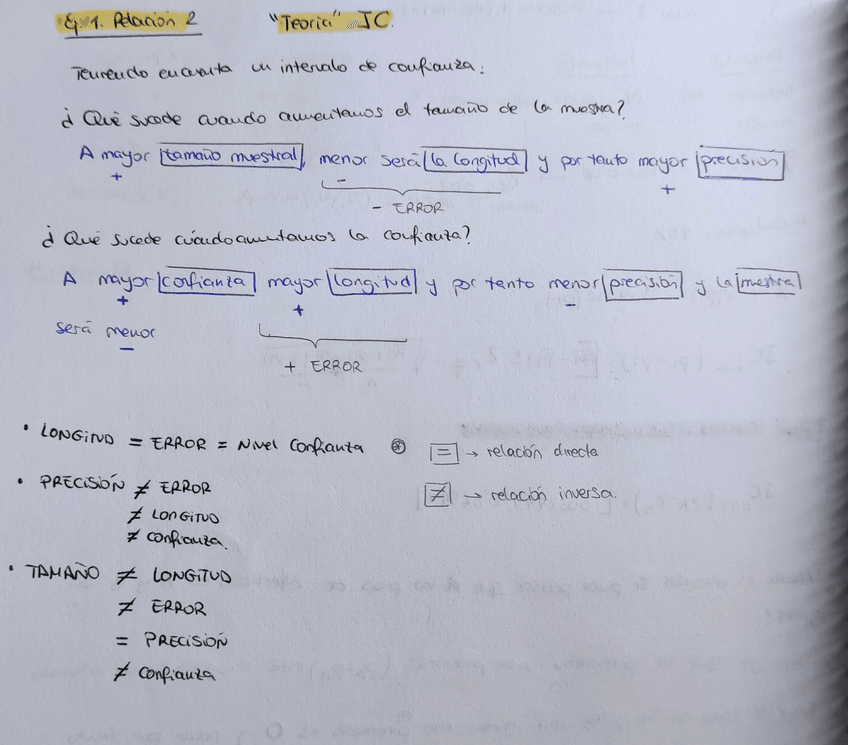 Ej 1. Relación 2 "Teoría" IC.
Teniendo en cuenta un intervalo de confianza:
¿Qué sucede cuando aumentamos el tamaño de la muestra?
A mayor tamaño muestral, menor será la longitud y por tanto mayor precisión
+ - +
- ERROR
¿Qué sucede cuándo aumentamos la confianza?
A mayor confianza mayor longitud y por tanto menor precisión y la muestra
+ + -
será menor
-
+ ERROR
• LONGITUD = ERROR = Nivel Confianza ⊛ = → relación directa
• PRECISIÓN ≠ ERROR ≠ → relación inversa.
≠ LONGITUD
≠ Confianza.
• TAMAÑO ≠ LONGITUD
≠ ERROR
= PRECISIÓN
≠ Confianza